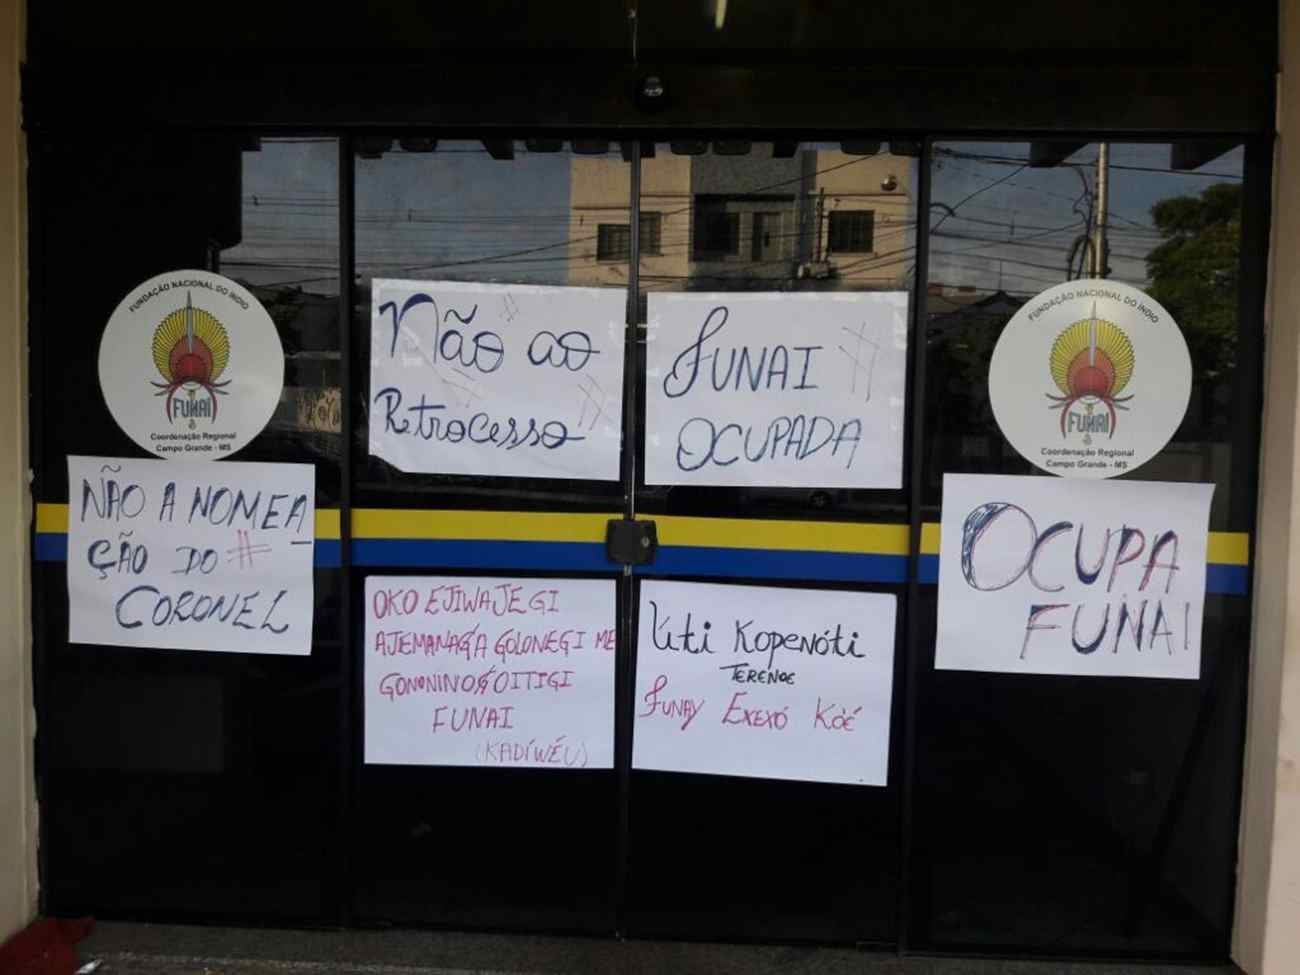 FUNDAÇÃO NACIONAL DO ÍNDIO
FUNAI
Coordenação Regional
Campo Grande - MS
FUNDAÇÃO NACIONAL DO ÍNDIO
FUNAI
Coordenação Regional
Campo Grande - MS
Não # ao
Retrocesso #
FUNAI #
OCUPADA
NÃO A NOMEA
ÇÃO DO #
CORONEL
OCUPA
FUNAI
OKO EJIWAJEGI
FUNAI
(KADÍWÉU)
Úti Kopenóti
TERENOE
FUNAY EXEXÓ KÓÉ